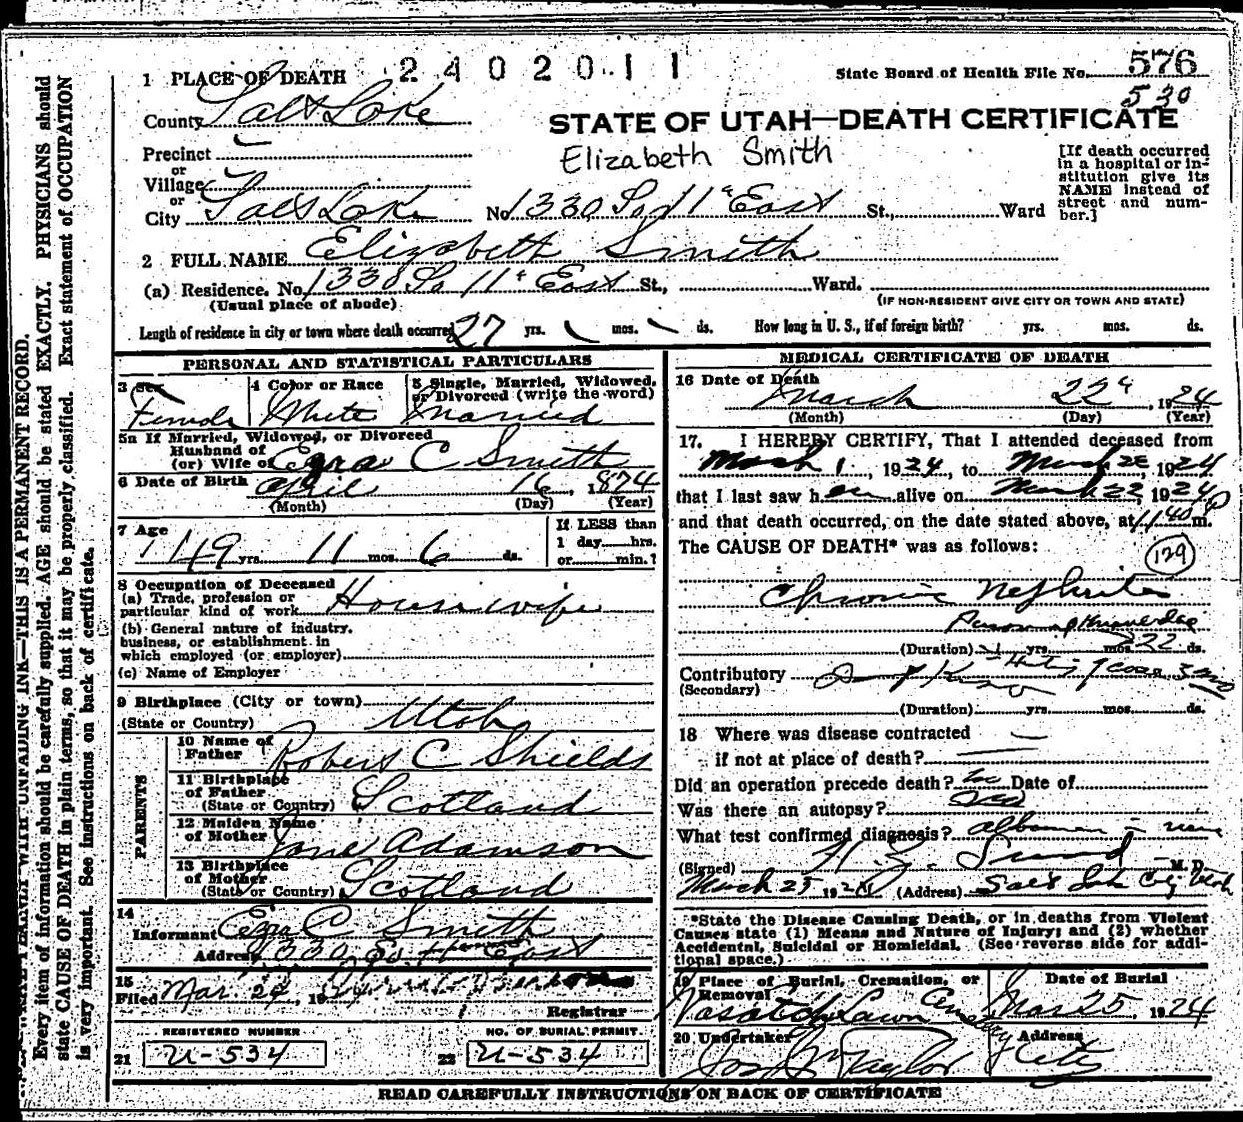 2402011
1 PLACE OF DEATH
State Board of Health File No. 576
530
County Salt Lake
STATE OF UTAH—DEATH CERTIFICATE
Elizabeth Smith
Precinct
or
Village
or
City Salt Lake No. 1330 So 11 East St., Ward
[If death occurred in a hospital or institution give its NAME instead of street and number.]
2 FULL NAME Elizabeth Smith
(a) Residence. No. 1330 So 11 East St., Ward.
(Usual place of abode) (IF NON-RESIDENT GIVE CITY OR TOWN AND STATE)
Length of residence in city or town where death occurred 27 yrs. mos. ds. How long in U. S., if of foreign birth? yrs. mos. ds.
PERSONAL AND STATISTICAL PARTICULARS
3 Sex Female
4 Color or Race White
5 Single, Married, Widowed, or Divorced (write the word) Married
5a If Married, Widowed, or Divorced
Husband of
(or) Wife of Ezra C Smith
6 Date of Birth April 16, 1874
(Month) (Day) (Year)
7 Age 49 yrs. 11 mos. 6 ds.
If LESS than
1 day hrs.
or min.?
8 Occupation of Deceased
(a) Trade, profession or
particular kind of work Housewife
(b) General nature of industry,
business, or establishment in
which employed (or employer)
(c) Name of Employer
9 Birthplace (City or town)
(State or Country) Utah
PARENTS
10 Name of Father Robert C Shields
11 Birthplace of Father
(State or Country) Scotland
12 Maiden Name of Mother Jane Adamson
13 Birthplace of Mother
(State or Country) Scotland
14
Informant Ezra C Smith
Address 1330 So 11 East
15
Filed Mar. 24, 1924
Registrar
REGISTERED NUMBER
21 U-534
NO. OF BURIAL PERMIT
22 U-534
MEDICAL CERTIFICATE OF DEATH
16 Date of Death March 22, 1924
(Month) (Day) (Year)
17. I HEREBY CERTIFY, That I attended deceased from
March 1, 1924, to March 22, 1924
that I last saw her alive on March 22, 1924
and that death occurred, on the date stated above, at 11:40 P m.
The CAUSE OF DEATH* was as follows:
129
Chronic Nephritis
(Duration) yrs. mos. 22 ds.
Contributory
(Secondary)
3 mo
(Duration) yrs. mos. ds.
18 Where was disease contracted
if not at place of death?
Did an operation precede death? no Date of
Was there an autopsy? no
What test confirmed diagnosis? albumen in urine
(Signed) M. D.
March 25 1924 (Address) Salt Lake City Utah
*State the Disease Causing Death, or in deaths from Violent
Causes state (1) Means and Nature of Injury; and (2) whether
Accidental, Suicidal or Homicidal. (See reverse side for addi-
tional space.)
19 Place of Burial, Cremation, or Removal
Wasatch Lawn Cemetery
Date of Burial
Mar 25, 1924
20 Undertaker
Jos Wm Taylor
Address
City
READ CAREFULLY INSTRUCTIONS ON BACK OF CERTIFICATE
WRITE PLAINLY WITH UNFADING INK—THIS IS A PERMANENT RECORD.
Every item of information should be carefully supplied. AGE should be stated EXACTLY. PHYSICIANS should
state CAUSE OF DEATH in plain terms, so that it may be properly classified. Exact statement of OCCUPATION
is very important. See instructions on back of certificate.